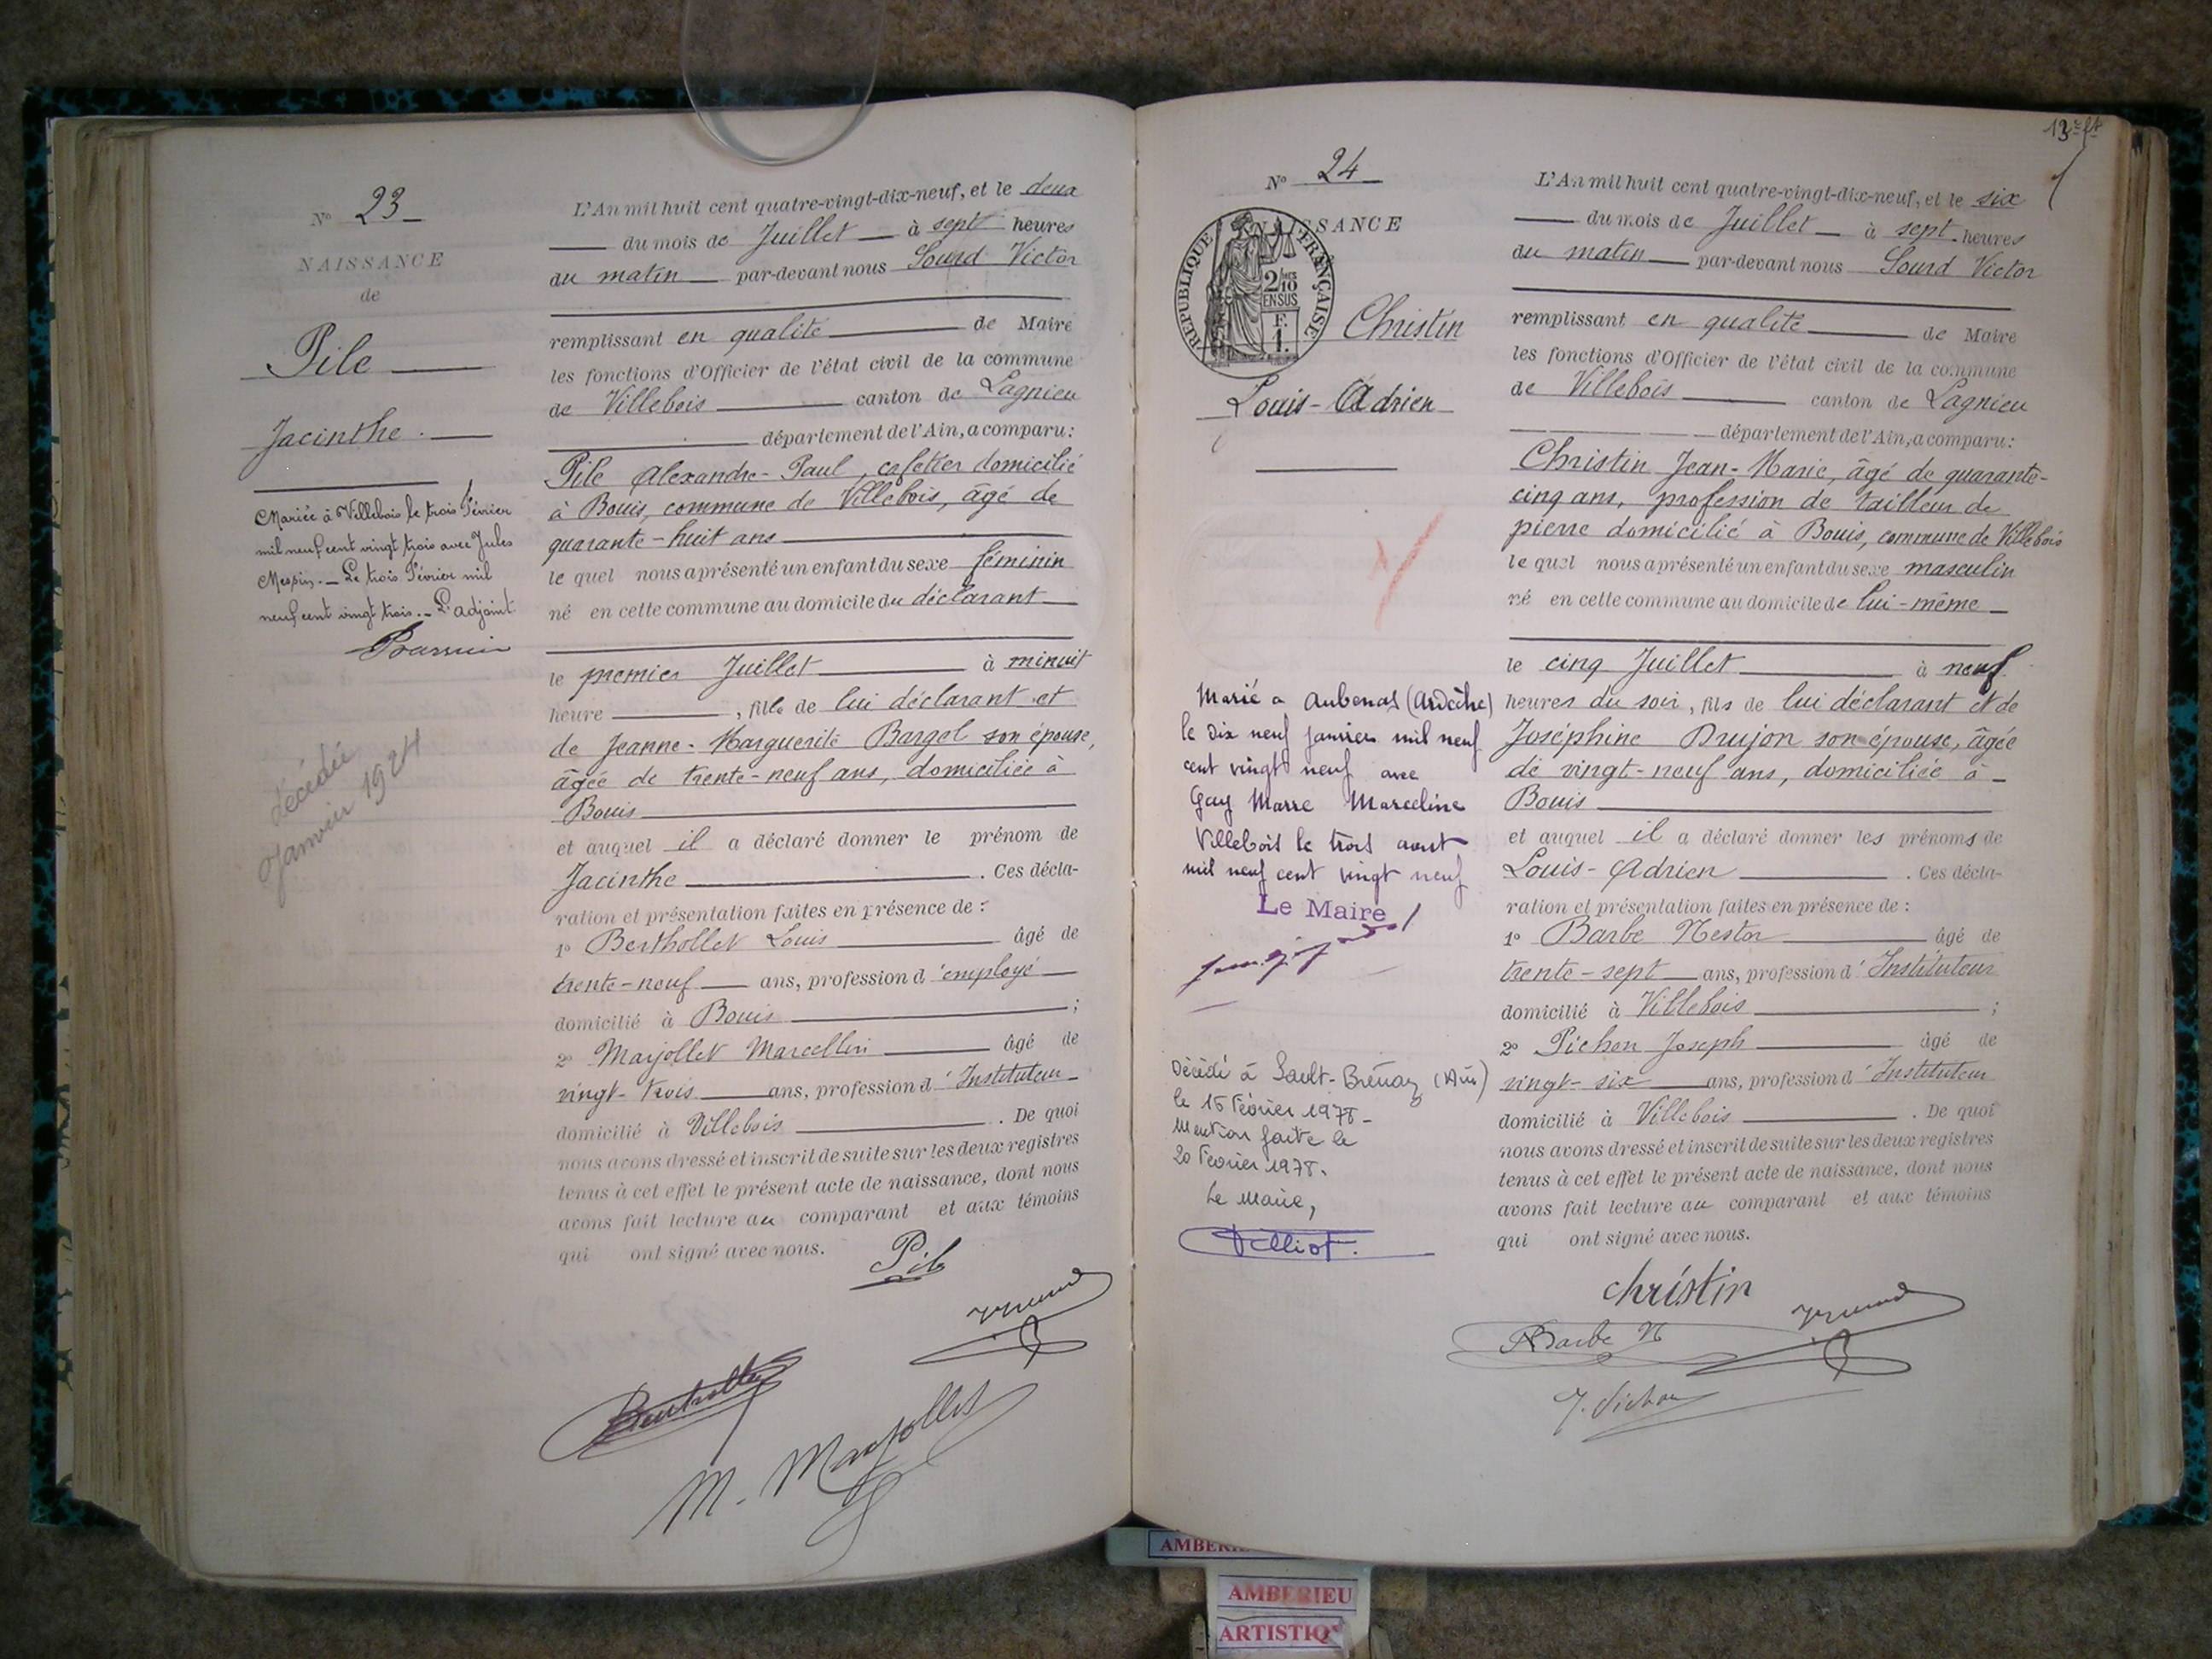 N° 23
NAISSANCE
de
Pile
Jacinthe.
Mariée à Villebois le trois Février
mil neuf cent vingt trois avec Jules
Le trois Février mil
neuf cent vingt trois. L'adjoint
décédée
Janvier 1924
L'An mil huit cent quatre-vingt-dix-neuf, et le deux
du mois de Juillet à sept heures
du matin par-devant nous Sourd Victor
remplissant en qualité de Maire
les fonctions d'Officier de l'état civil de la commune
de Villebois canton de Lagnieu
département de l'Ain, a comparu:
Pile Alexandre-Paul, cafetier domicilié
à Bouis, commune de Villebois, âgé de
quarante-huit ans
le quel nous a présenté un enfant du sexe féminin
né en cette commune au domicile du déclarant
le premier Juillet à minuit
heure, fille de lui déclarant et
de Jeanne-Marguerite Bargel son épouse,
âgée de trente-neuf ans, domiciliée à
Bouis
et auquel il a déclaré donner le prénom de
Jacinthe. Ces décla-
ration et présentation faites en présence de :
1° Berthollet Louis âgé de
trente-neuf ans, profession d'employé
domicilié à Bouis ;
2° Marjollet Marcellin âgé de
vingt-trois ans, profession d'Instituteur
domicilié à Villebois. De quoi
nous avons dressé et inscrit de suite sur les deux registres
tenus à cet effet le présent acte de naissance, dont nous
avons fait lecture au comparant et aux témoins
qui ont signé avec nous.
Pile
M. Marjollet
13e ft
N° 24
NAISSANCE
RÉPUBLIQUE FRANÇAISE
2/10
EN SUS
F.
1.
Christin
Louis-Adrien
Marié a Aubenas (Ardèche)
le dix neuf janvier mil neuf
cent vingt neuf avec
Gay Marre Marceline
Villebois le trois aout
mil neuf cent vingt neuf
Le Maire
Décédé à Sault-Brénaz (Ain)
le 15 Février 1978-
Mention faite le
20 Février 1978.
Le Maire,
L'An mil huit cent quatre-vingt-dix-neuf, et le six
du mois de Juillet à sept heures
du matin par-devant nous Sourd Victor
remplissant en qualité de Maire
les fonctions d'Officier de l'état civil de la commune
de Villebois canton de Lagnieu
département de l'Ain, a comparu:
Christin Jean-Marie, âgé de quarante-
cinq ans, profession de tailleur de
pierre domicilié à Bouis, commune de Villebois
le quel nous a présenté un enfant du sexe masculin
né en cette commune au domicile de lui-même
le cinq Juillet à neuf
heures du soir, fils de lui déclarant et de
Joséphine Drujon son épouse, âgée
de vingt-neuf ans, domiciliée à
Bouis
et auquel il a déclaré donner les prénoms de
Louis-Adrien. Ces décla-
ration et présentation faites en présence de :
1° Barbe Nestor âgé de
trente-sept ans, profession d'Instituteur
domicilié à Villebois ;
2° Pichon Joseph âgé de
vingt-six ans, profession d'Instituteur
domicilié à Villebois. De quoi
nous avons dressé et inscrit de suite sur les deux registres
tenus à cet effet le présent acte de naissance, dont nous
avons fait lecture au comparant et aux témoins
qui ont signé avec nous.
christin
Barbe N
J. Pichon
AMBERIEU
ARTISTIQ